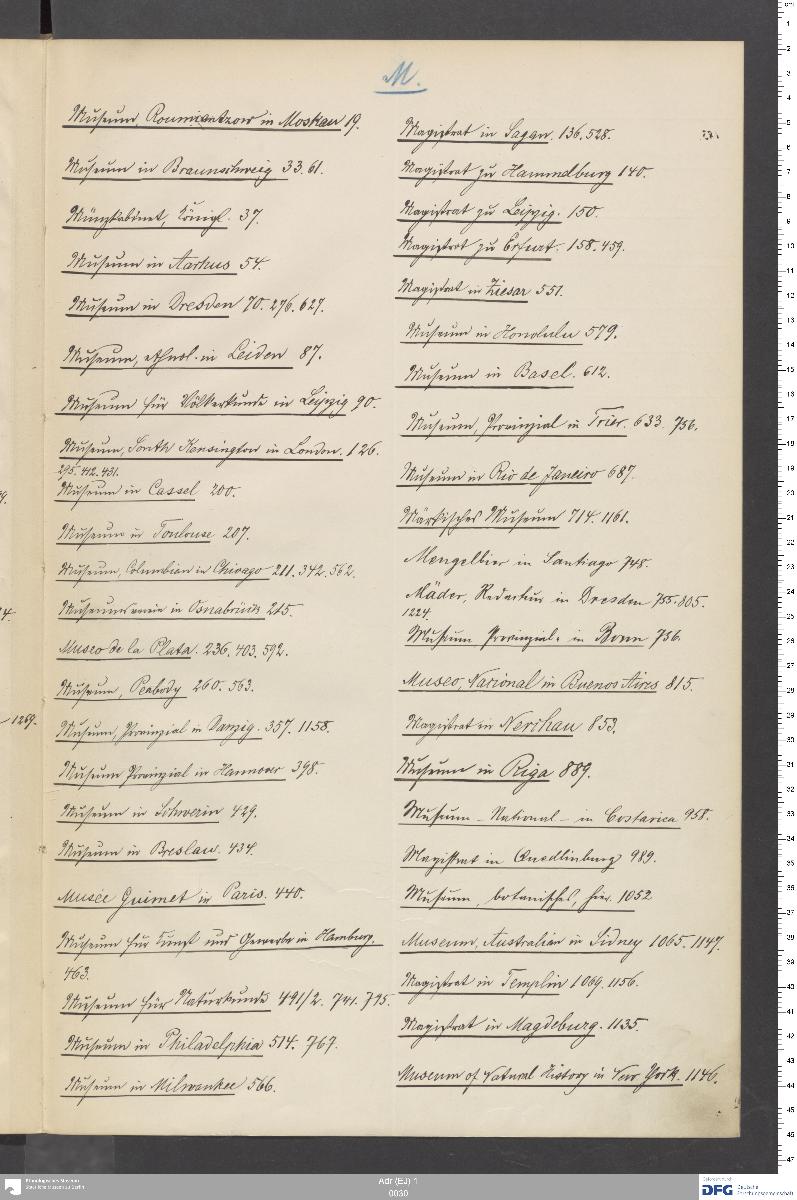 M.
Museum, Roumiantzow in Moskau 19.
Museum in Braunschweig 33. 61.
Münzkabinet, Königl. 37.
Museum in Aarhus 54.
Museum in Dresden 70. 276. 627.
Museum, ethnol. in Leiden 87.
Museum für Völkerkunde in Leipzig 90.
Museum, South Kensington in London. 126.
295. 412. 431.
Museum in Cassel 200.
Museum in Toulouse 207.
Museum, Columbian in Chicago 211. 342. 562.
Museumsverein in Osnabrück 215.
Museo de la Plata. 236. 403. 592.
Museum, Peabody 260. 563.
Museum, Provinzial in Danzig. 357. 1158.
Museum Provinzial in Hannover 398.
Museum in Schwerin 429.
Museum in Breslau. 434.
Musée Guimet in Paris. 440.
Museum für Kunst und Gewerbe in Hamburg.
463.
Museum für Naturkunde 491/2. 741. 795.
Museum in Philadelphia 514. 767.
Museum in Milwaukee 566.
Magistrat in Sagan. 136. 528.
Magistrat zu Hammelburg 140.
Magistrat zu Leipzig. 150.
Magistrat zu Erfurt. 158. 459.
Magistrat in Ziesar 551.
Museum in Honolulu 579.
Museum in Basel. 612.
Museum, Provinzial in Trier. 633. 736.
Museum in Rio de Janeiro 687.
Märkisches Museum 714. 1161.
Mengelbier in Santiago 748.
Mäder, Redacteur in Dresden 755. 805.
1224.
Museum Provinzial- in Bonn 736.
Museo, Nacional in Buenos Aires 815.
Magistrat in Nerchau 853.
Museum in Riga 889.
Museum - National - in Costarica 958.
Magistrat in Quedlinburg 989.
Museum, botanisches, hier. 1052
Museum, Australian in Sidney 1065. 1147.
Magistrat in Templin 1069. 1156.
Magistrat in Magdeburg. 1135.
Museum of Natural History in New York. 1146.
1269.
Ethnologisches Museum
Staatliche Museen zu Berlin
Adr (EJ) 1
0030
DFG
Deutsche
Forschungsgemeinschaft